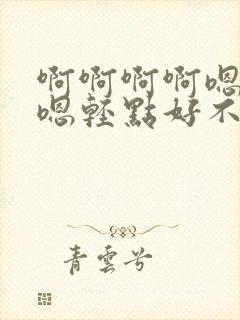 啊啊啊啊嗯
嗯輕點好不
青雲兮